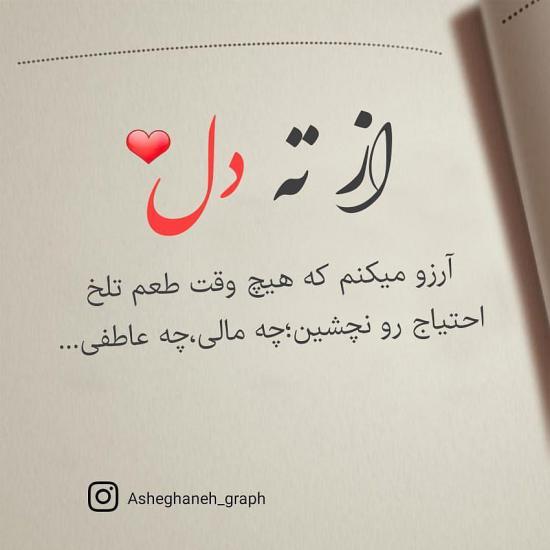 از ته دل❤
آرزو میکنم که هیچ وقت طعم تلخ
احتیاج رو نچشین؛چه مالی،چه عاطفی...
Asheghaneh_graph